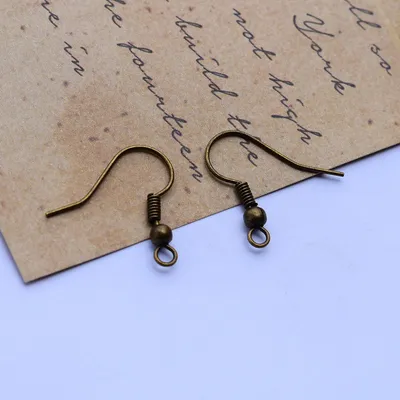 ll so
York
not high
build the
the fourteen
e in